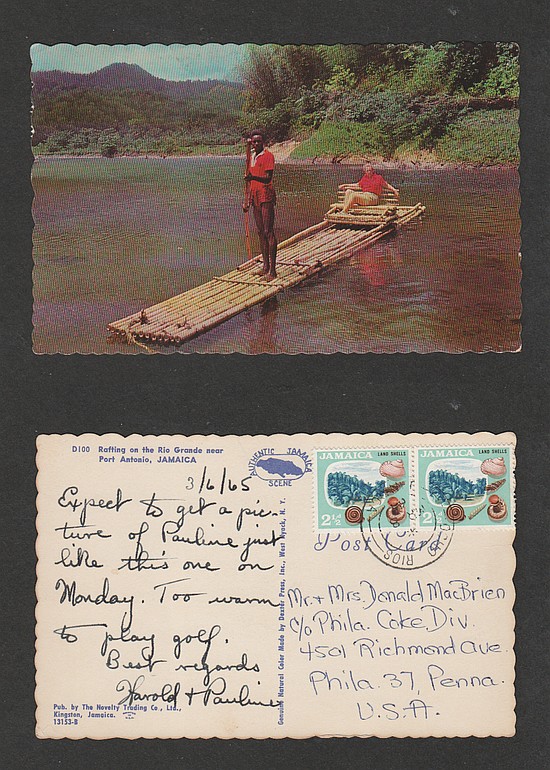 D100 Rafting on the Rio Grande near
Port Antonio, JAMAICA
AUTHENTIC JAMAICA
SCENE
3/6/65
Expect to get a pic-
ture of Pauline just
like this one on
Monday. Too warm
to play golf.
Best regards
Harold + Pauline
Pub. by The Novelty Trading Co., Ltd.,
Kingston, Jamaica.
13153-B
Genuine Natural Color Made by Dexter Press, Inc., West Nyack, N. Y.
JAMAICA LAND SHELLS
2½
JAMAICA LAND SHELLS
2½
RIOS
Post Card
Mr. + Mrs. Donald MacBrien
c/o Phila. Coke Div.
4501 Richmond Ave.
Phila. 37, Penna.
U.S.A.